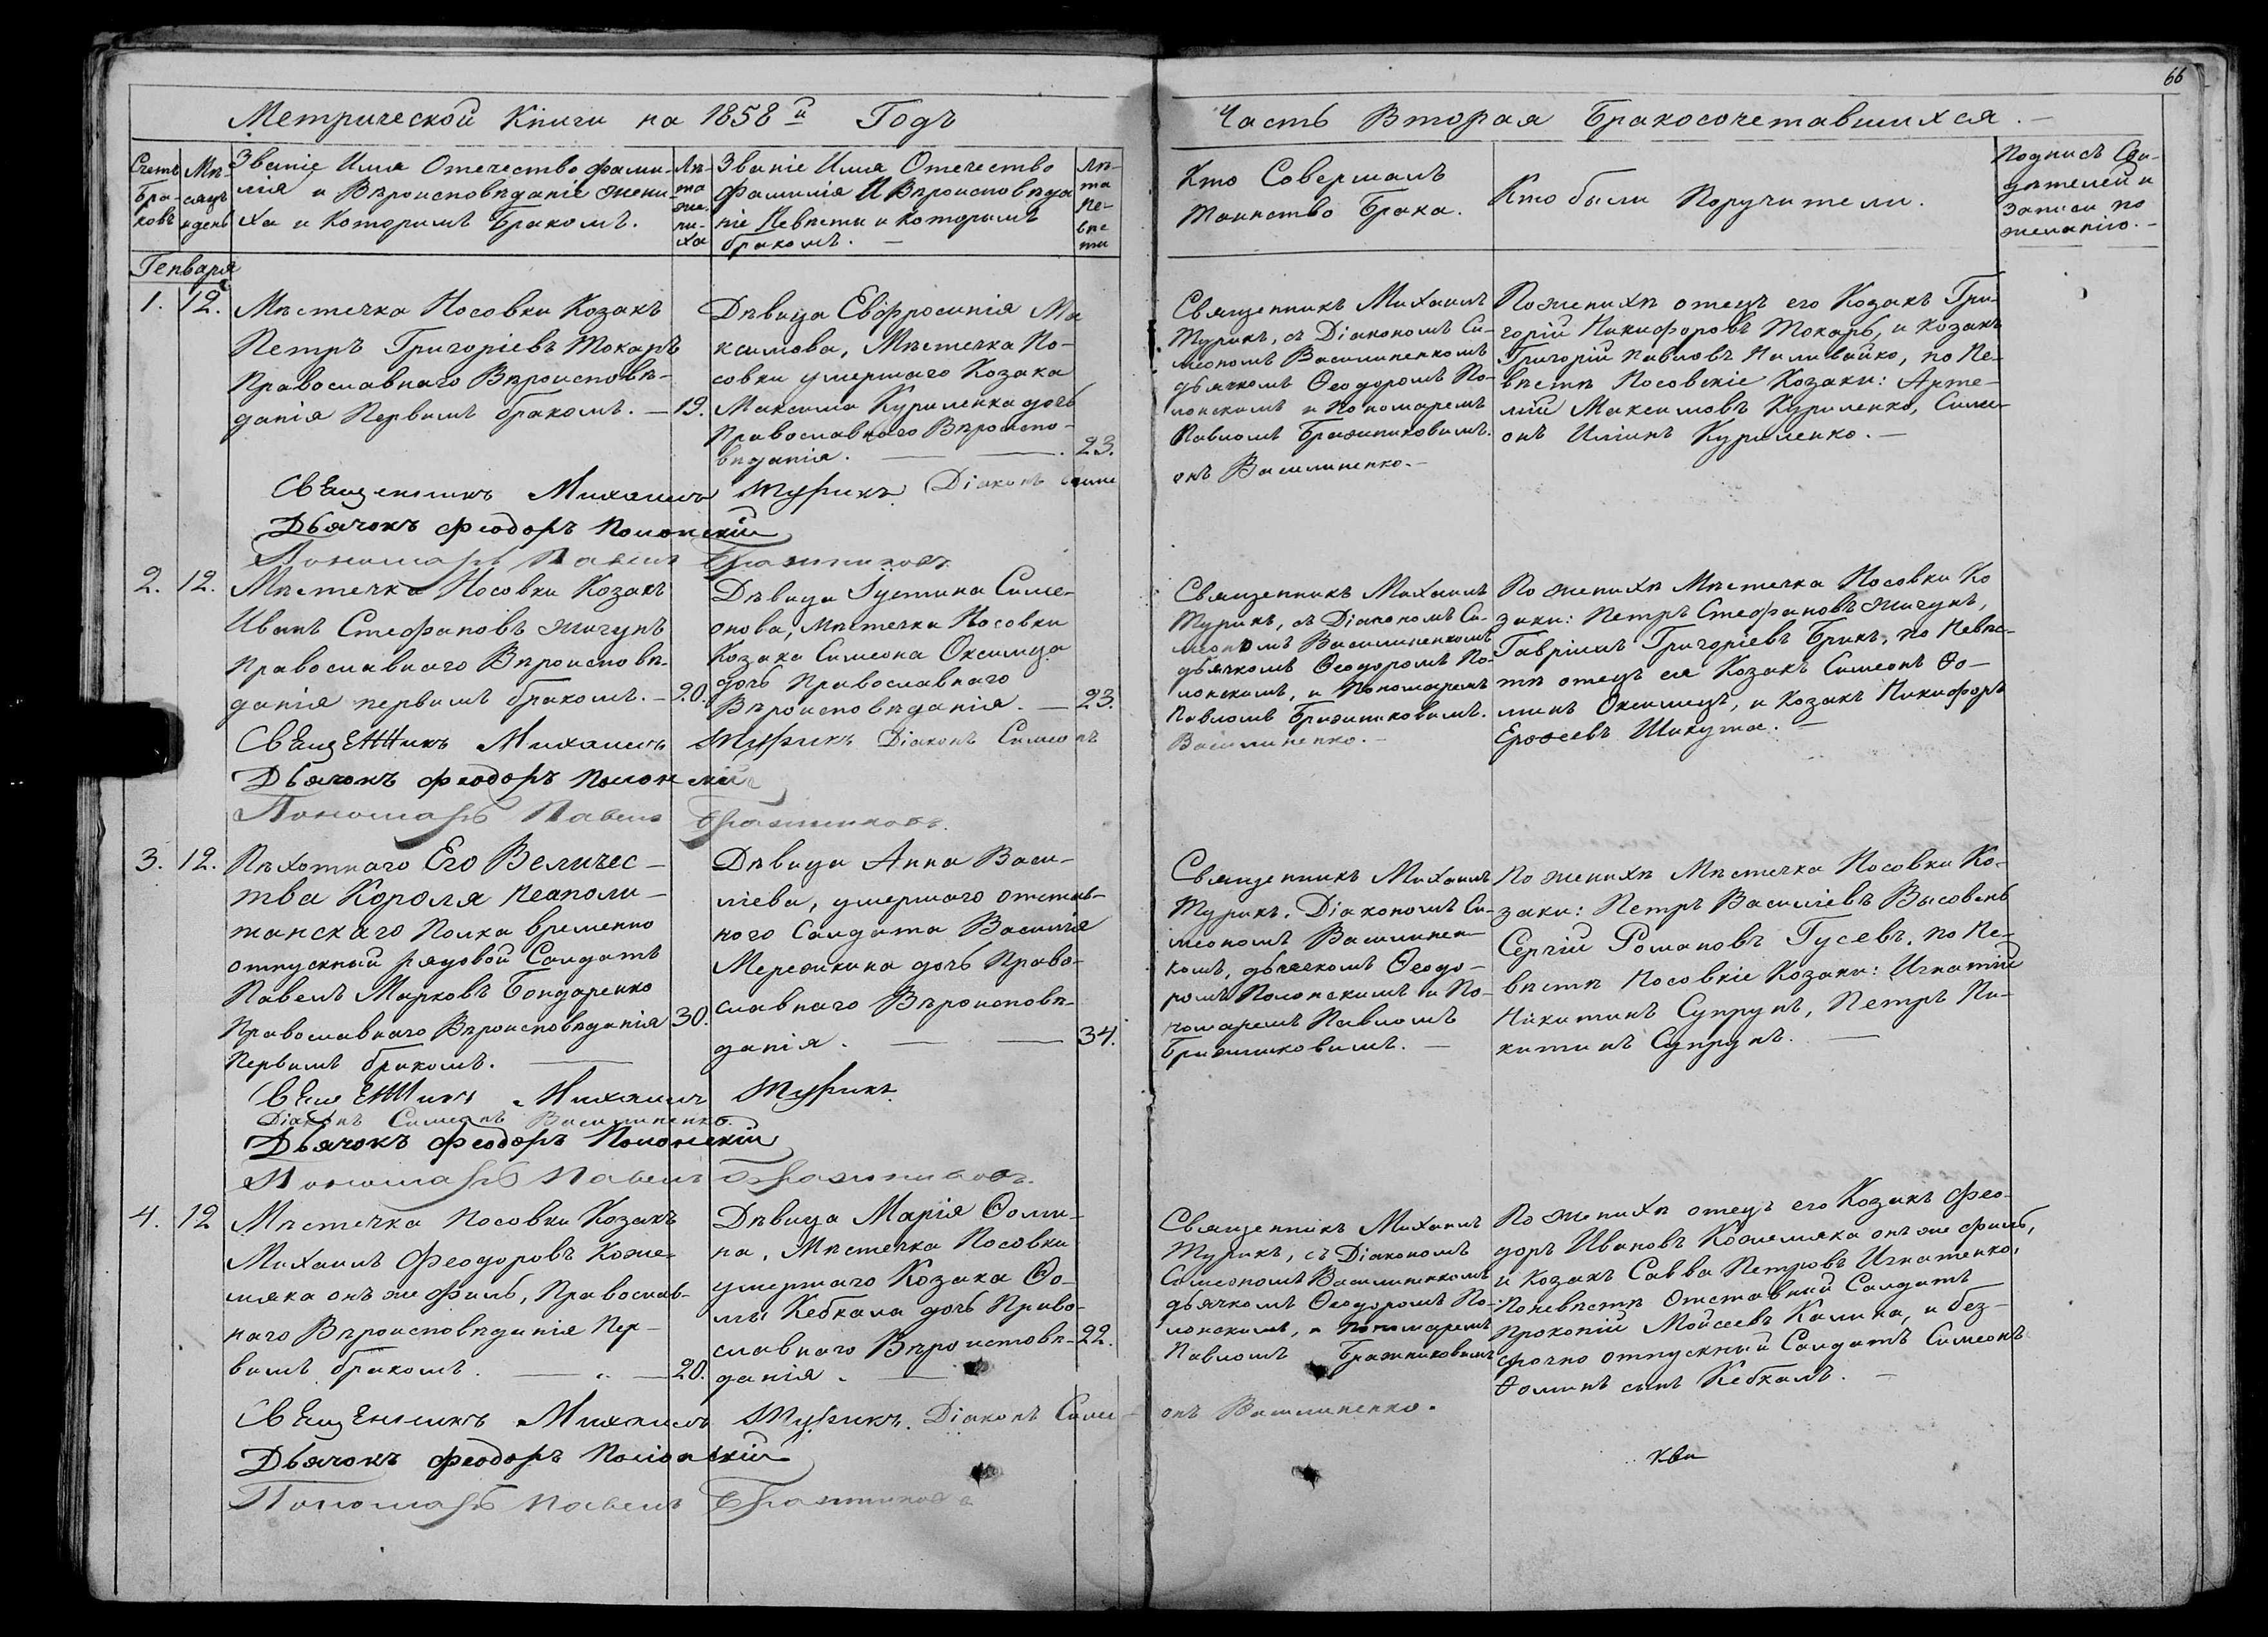 66
Метрической Книги на 1858й Годъ
Часть Вторая Бракосочетавшихся.
Счетъ Бра-ковъ
Мѣ-сяцъ и день
Званіе Имя Отечество фами-
лія и Вѣроисповѣданіе жени-
ха и Которимъ Бракомъ.
Лѣ-та же-ни-ха
Званіе Имя Отечество
Фамилія И Вѣроисповѣда
ніе Невѣсти и Которимъ
бракомъ.
Лѣ-та не-вѣс-ти
Кто Совершалъ
Таинство Брака.
Кто были Поручители.
Подпись Сви-
дѣтелей и
записи по
желанію.
Генваря
1. 12.
Мѣстечка Носовки Козакъ
Петръ Григоріевъ Токаръ
Православнаго Вѣроисповѣ-
данія Первимъ бракомъ. — 19.
Дѣвица Евфросинія Ма
ксимова, Мѣстечка Но-
совки умершаго Козака
Максима Куриленка дочь
Православнаго Вѣроиспо-
вѣданія. — 23.
Священникъ Михаилъ
Турикъ, съ Діакономъ Си-
меономъ Василиненкомъ
дьячкомъ Ѳеодоромъ По-
лонскимъ и Пономаремъ
Павломъ Бражниковимъ.
По женихѣ отецъ его Козакъ Гри-
горій Никифоровъ Токарь, и Козакъ
Григорій Павловъ Наливайко, по Не-
вѣстѣ Носовскіе Козаки: Арте-
мій Максимовъ Куриленко, Симе-
онъ Илiинъ Куриленко. —
Священникъ Михаилъ Турикъ Діаконъ Симе
онъ Василиненко.
Дьячокъ Феодоръ Полонскій
Пономарь Павелъ Бражниковъ
2. 12.
Мѣстечка Носовки Козакъ
Иванъ Стефановъ Жигунъ
Православнаго Вѣроисповѣ-
данія первимъ бракомъ. — 20.
Дѣвица Іустина Симе-
онова, Мѣстечка Носовки
Козака Симеона Оксимца
дочь Православнаго
Вѣроисповѣданія. — 23.
Священникъ Михаилъ
Турикъ, съ Діакономъ Си-
меономъ Василиненкомъ
дьячкомъ Ѳеодоромъ По-
лонскимъ, и Пономаремъ
Павломъ Бражниковимъ.
По женихѣ Мѣстечка Носовки Ко
заки: Петръ Стефановъ Жигунъ,
Гавріилъ Григоріевъ Брикъ, по Невѣс-
тѣ отецъ ея Козакъ Симеонъ Ѳо-
минъ Оксимецъ, и Козакъ Никифоръ
Ерофеевъ Шикута. —
Священникъ Михаилъ Турикъ Діаконъ Симеонъ
Василиненко. —
Дьячокъ Феодоръ Полонскій
Пономарь Павелъ Бражниковъ.
3. 12.
Пѣхотнаго Его Величес-
тва Короля Неаполи-
танскаго Полка временно
отпускный рядовой Салдатъ
Павелъ Марковъ Бондаренко
Православнаго Вѣроисповѣданія 30.
Первимъ бракомъ.
Дѣвица Анна Васи-
ліева, умершаго отстав-
ного Салдата Василія
Мережкина дочь Право-
славнаго Вѣроисповѣ-
данія. — 34.
Священникъ Михаилъ
Турикъ. Діакономъ Си-
меономъ Василинен-
комъ, дьячкомъ Ѳеодо-
ромъ Полонскимъ и По-
номаремъ Павломъ
Бражниковимъ. —
По женихѣ Мѣстечка Носовки Ко-
заки: Петръ Василіевъ Высовень
Сергій Романовъ Гусевъ. по Не-
вѣстѣ Носовкіе Козаки: Игнатій
Никитинъ Супрунъ, Петръ Ни-
китинъ Супрунъ. —
Священникъ Михаилъ Турикъ
Діаконъ Симеонъ Василиненко.
Дьячокъ Феодоръ Полонскій
Пономарь Павелъ Бражниковъ.
4. 12
Мѣстечка Носовки Козакъ
Михаилъ Феодоровъ Коже-
мяка онъ же Филь, Православ-
наго Вѣроисповѣданія Пер-
вимъ бракомъ. — 20.
Дѣвица Марія Ѳоми-
на, Мѣстечка Носовки
умершаго Козака Ѳо-
мы Кебкала дочь Право-
славнаго Вѣроисповѣ- 22.
данія. —
Священникъ Михаилъ
Турикъ, съ Діакономъ
Симеономъ Василиненкомъ
дьячкомъ Ѳеодоромъ По-
лонскимъ, и Пономаремъ
Павломъ Бражниковимъ
По женихѣ отецъ его Козакъ Фео-
доръ Ивановъ Кожемяка онъ же Филь,
и Козакъ Савва Петровъ Игнатенко,
Поневѣстѣ Отставный Салдатъ
Прокопій Мойсеевъ Калина, и без-
срочно отпускный Салдатъ Симеонъ
Ѳоминъ сынъ Кебкалъ. —
Священникъ Михаилъ Турикъ. Діаконъ Симе
онъ Василиненко.
Дьячокъ Феодоръ Полонскій
Пономарь Павелъ Бражниковъ